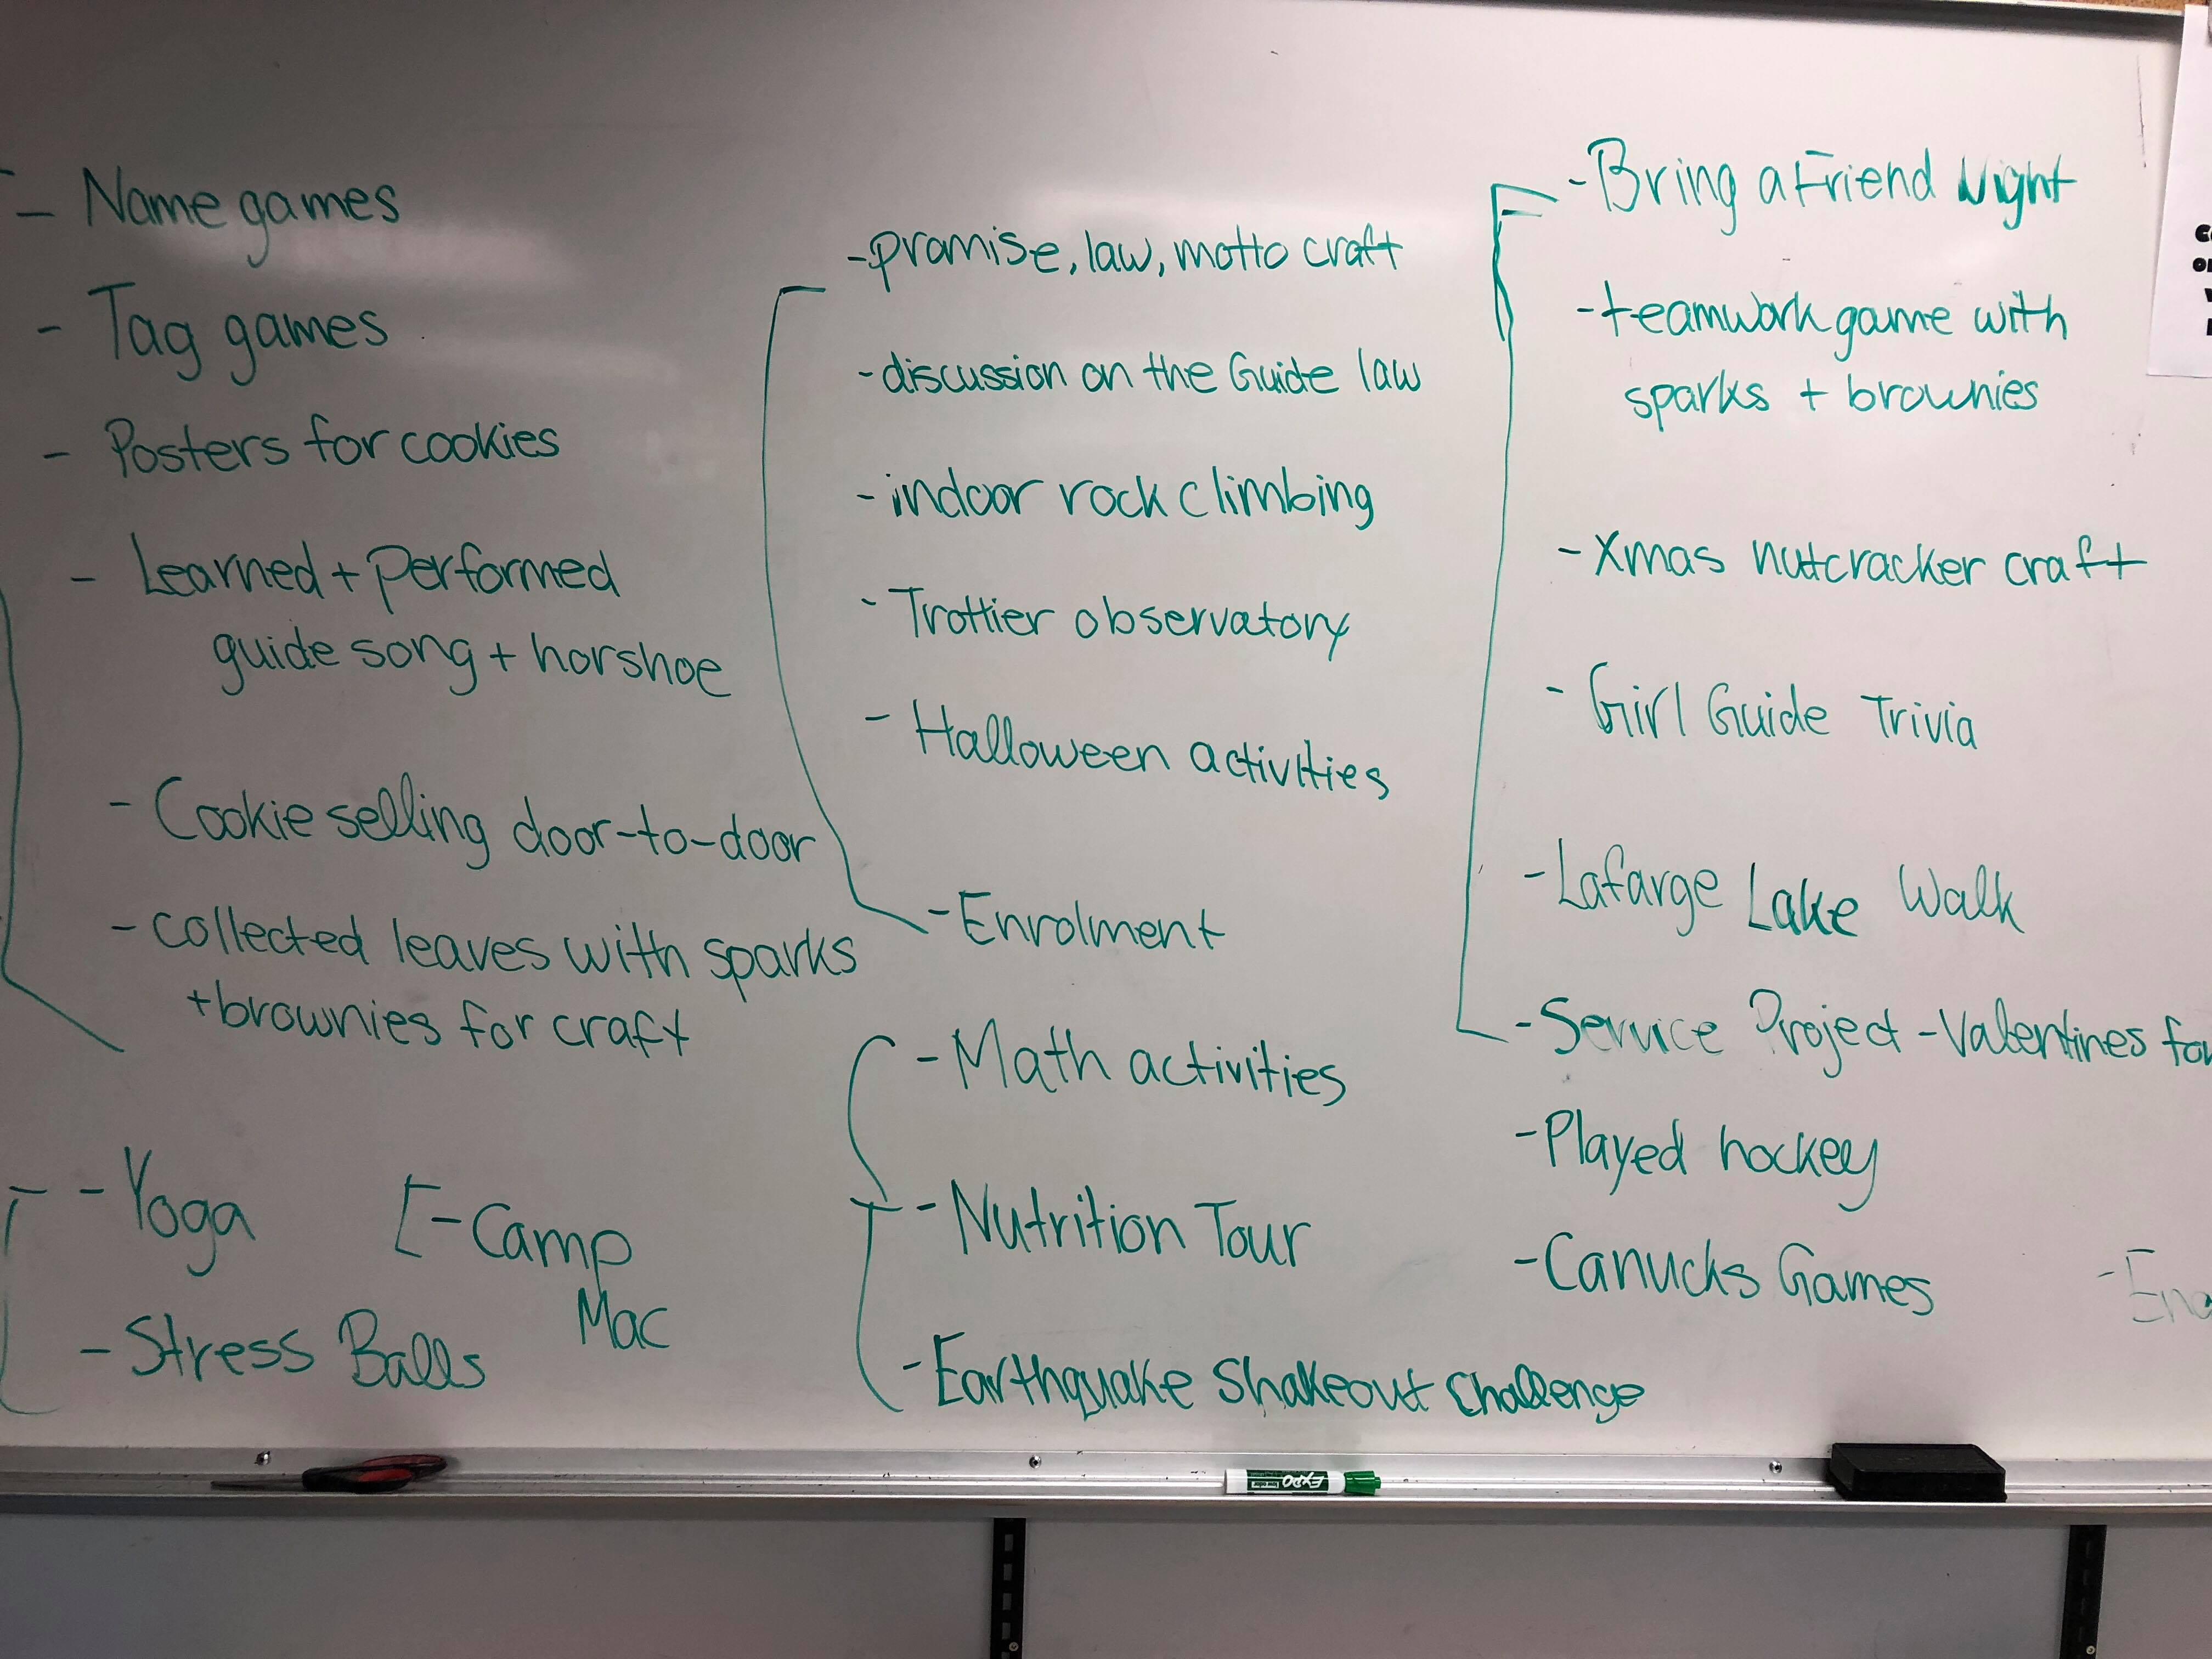 - Name games
- Tag games
- Posters for cookies
- Learned + performed
guide song + horshoe
- Cookie selling door-to-door
- collected leaves with sparks
+ brownies for craft
- Yoga
- Stress Balls
- Camp
Mac
- promise, law, motto craft
- discussion on the Guide law
- indoor rock climbing
- Trottier observatory
- Halloween activities
- Enrolment
- Math activities
- Nutrition Tour
- Earthquake Shakeout Challenge
- Bring a Friend Night
- teamwork game with
sparks + brownies
- Xmas nutcracker craft
- Girl Guide Trivia
- Lafarge Lake Walk
- Service Project - Valentines
- Played hockey
- Canucks Games
EXPO